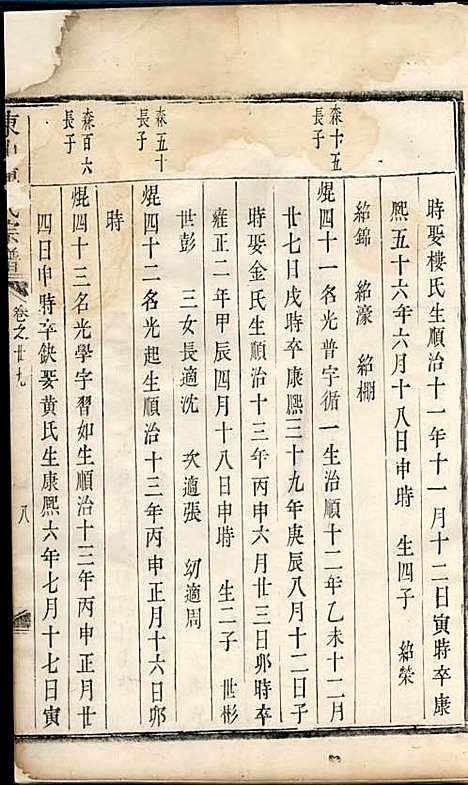 時娶樓氏生順治十一年十一月十二日寅時卒康
熙五十六年六月十八日申時 生四子 紹榮
紹錦 紹濠 紹棚
森十五
長子
焜四十一名光普字循一生治順十二年乙未十二月
廿七日戌時卒康熙三十九年庚辰八月十二日子
時娶金氏生順治十三年丙申六月廿三日卯時卒
雍正二年甲辰四月十八日申時 生二子 世彬
世彭 三女長適沈 次適張 幼適周
森五十
長子
焜四十二名光起生順治十三年丙申正月十六日卯
時
森百六
長子
焜四十三名光學字習如生順治十三年丙申正月廿
四日申時卒缺娶黃氏生康熙六年七月十七日寅
東 氏宗譜 卷之廿九 八